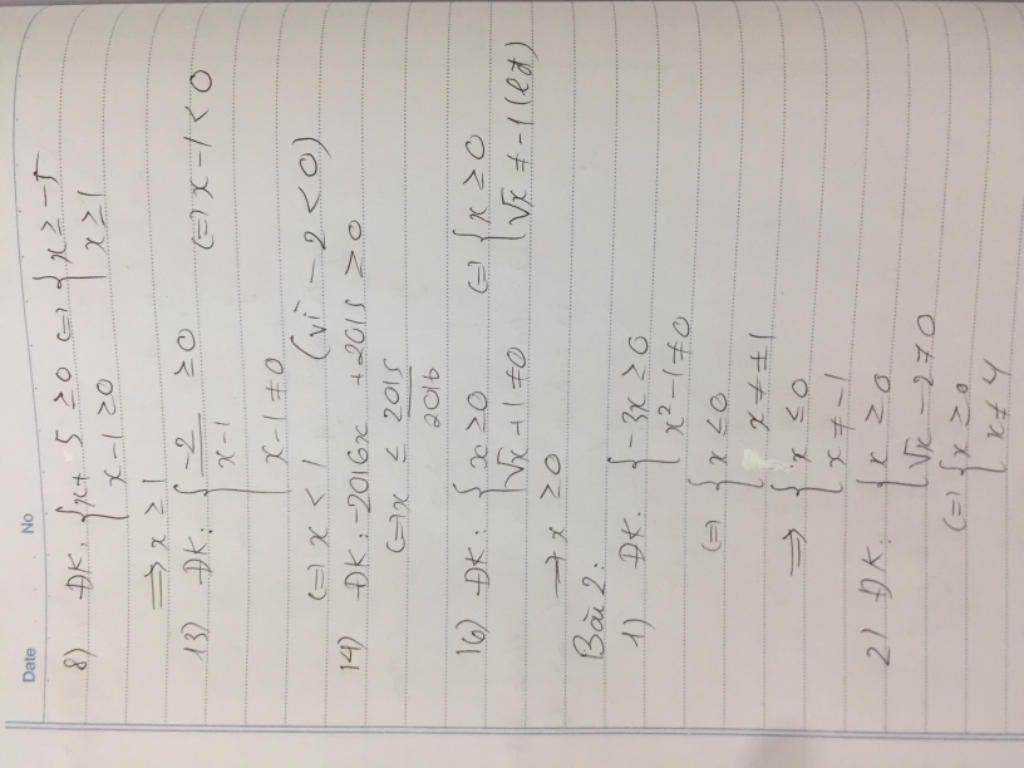 Date No
8) ĐK: { x + 5 ≥ 0 (=) { x ≥ -5
x - 1 ≥ 0 x ≥ 1
=> x ≥ 1
13) ĐK: { -2 / x-1 ≥ 0 (=) x - 1 < 0
x - 1 ≠ 0
(=) x < 1 (vì - 2 < 0)
14) ĐK: -2016x + 2015 ≥ 0
(=) x ≤ 2015 / 2016
16) ĐK: { x ≥ 0 (=) { x ≥ 0
√x + 1 ≠ 0 √x ≠ -1 (lđ)
→ x ≥ 0
Bài 2:
1) ĐK: { -3x ≥ 0
x² - 1 ≠ 0
(=) { x ≤ 0
x ≠ ±1
=> { x ≤ 0
x ≠ -1
2) ĐK: { x ≥ 0
√x - 2 ≠ 0
(=) { x ≥ 0
x ≠ 4